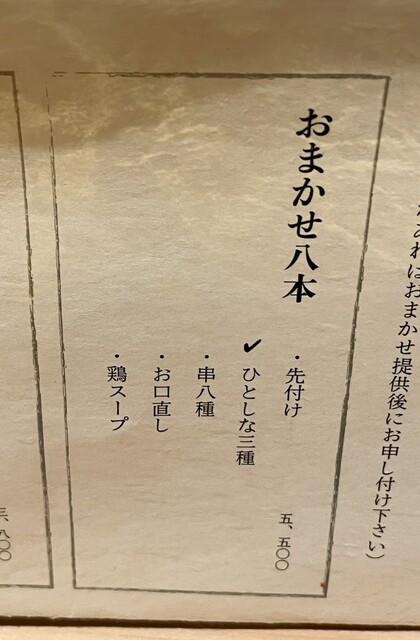 れはおまかせ提供後にお申し付け下さい）
おまかせ八本
・先付け
五、五〇〇
✓ひとしな三種
・串八種
・お口直し
・鶏スープ
八〇〇